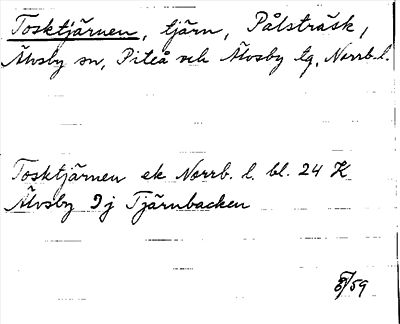 Tosktjärnen, tjärn, Pålsträsk,
Älvsby sn, Piteå och Älvsby tg, Norrb. l.
Tosktjärnen ek Norrb. l. bl. 24 K
Älvsby 9 j Tjärnbacken
/59